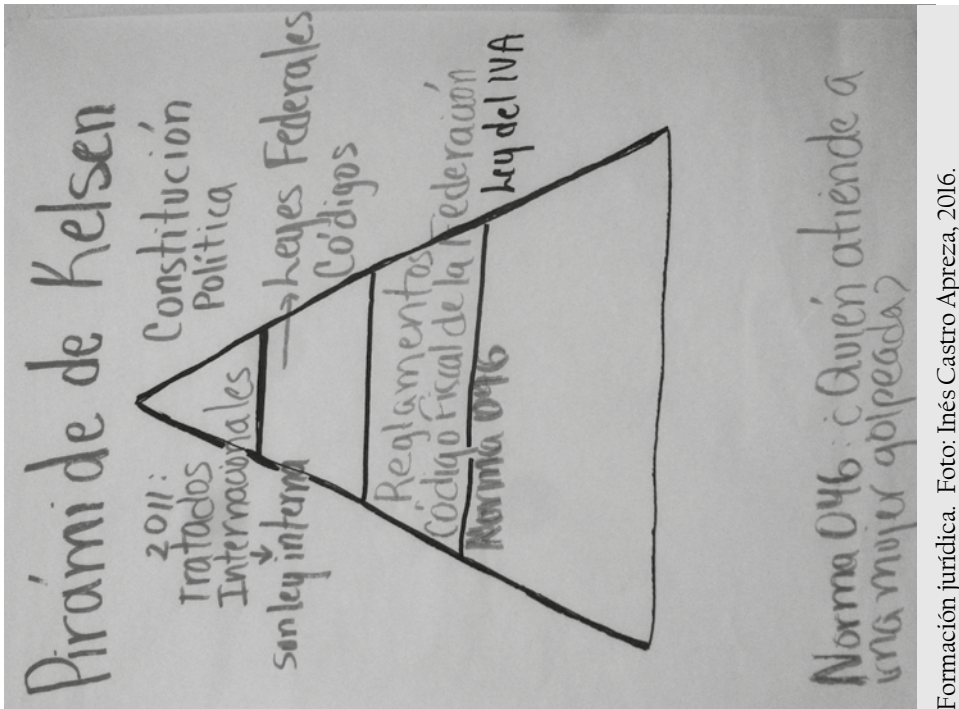 Pirámide de Kelsen
2011:
Tratados
Internacionales
son ley interna
Constitución
Política
Leyes Federales
Códigos
Reglamentos
Código Fiscal de la Federación
Ley del IVA
Norma 046
Norma 046: ¿Quién atiende a
una mujer golpeada?
Formación jurídica. Foto: Inés Castro Apreza, 2016.